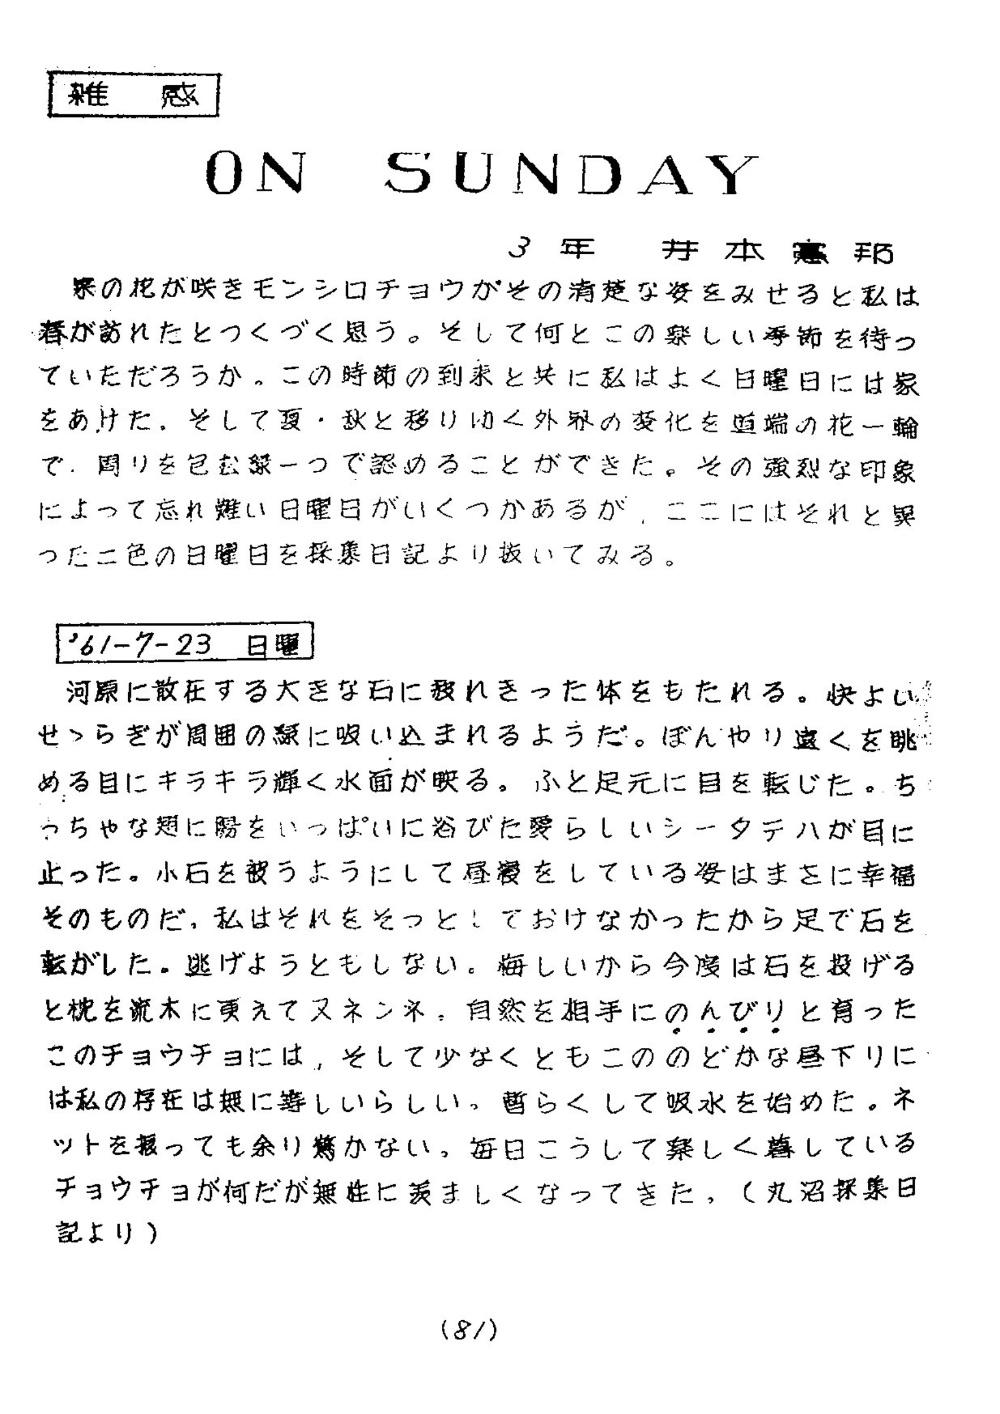 雑　感
ON SUNDAY
3年　井本憲邦
菜の花が咲きモンシロチョウがその清楚な姿をみせると私は
春が訪れたとつくづく思う。そして何とこの楽しい季節を待っ
ていただろうか。この時節の到来と共に私はよく日曜日には家
をあけた。そして夏・秋と移りゆく外界の変化を道端の花一輪
で、周りを包む緑一つで認めることができた。その強烈な印象
によって忘れ難い日曜日がいくつかあるが、ここにはそれと異
った二色の日曜日を採集日記より抜いてみる。
'61-7-23　日曜
河原に散在する大きな石に疲れきった体をもたれる。快よい
せゝらぎが周囲の緑に吸い込まれるようだ。ぼんやり遠くを眺
める目にキラキラ輝く水面が映る。ふと足元に目を転じた。ち
っちゃな翅に陽をいっぱいに浴びた愛らしいシータテハが目に
止った。小石を被うようにして昼寝をしている姿はまさに幸福
そのものだ。私はそれをそっとしておけなかったから足で石を
転がした。逃げようともしない。悔しいから今度は石を投げる
と枕を流木に更えて又ネンネ。自然を相手にのんびりと育った
このチョウチョには、そして少なくともこののどかな昼下りに
は私の存在は無に等しいらしい。暫らくして吸水を始めた。ネ
ットを振っても余り驚かない。毎日こうして楽しく暮している
チョウチョが何だが無性に羨ましくなってきた。（丸沼採集日
記より）
(81)